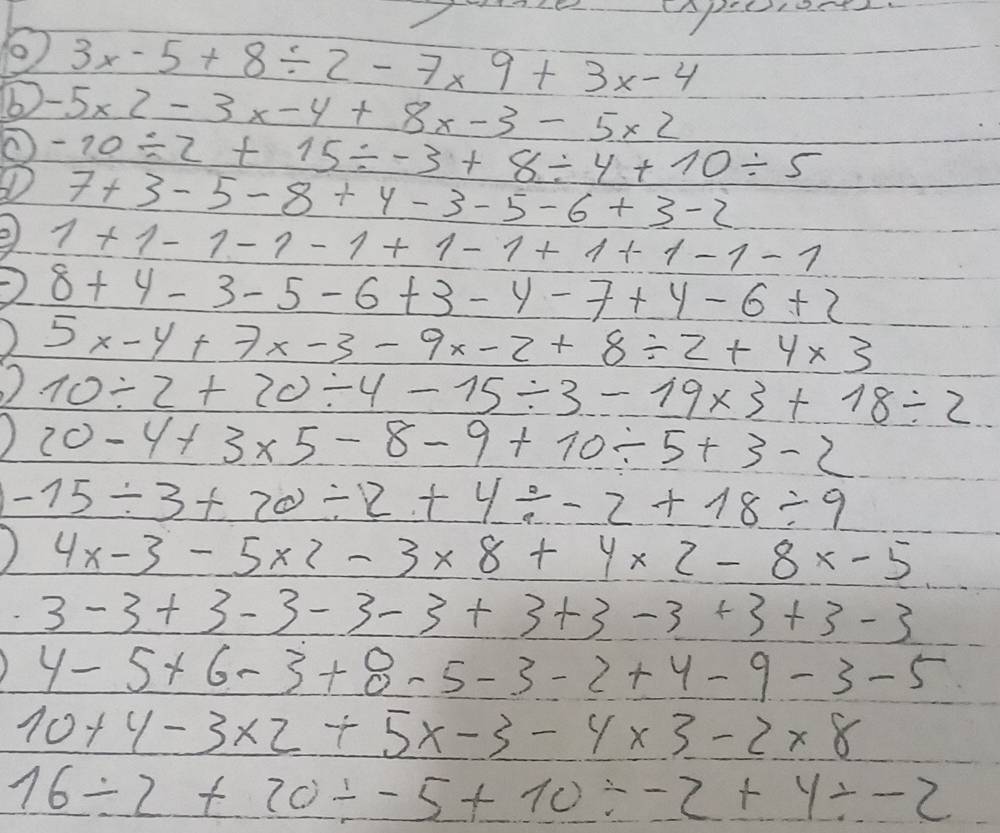 expresiones.
a) 3x-5+8÷2-7x9+3x-4
b) -5x2-3x-4+8x-3-5x2
c) -10÷2+15÷-3+8÷4+10÷5
d) 7+3-5-8+4-3-5-6+3-2
e) 1+1-1-1-1+1-1+1+1-1-1
8+4-3-5-6+3-4-7+4-6+2
5x-4+7x-3-9x-2+8÷2+4x3
10÷2+20÷4-15÷3-19x3+18÷2
20-4+3x5-8-9+10÷5+3-2
-15÷3+20÷2+4÷-2+18÷9
4x-3-5x2-3x8+4x2-8x-5
3-3+3-3-3-3+3+3-3+3+3-3
4-5+6-3+8-5-3-2+4-9-3-5
10+4-3x2+5x-3-4x3-2x8
16÷2+20÷-5+10÷-2+4÷-2